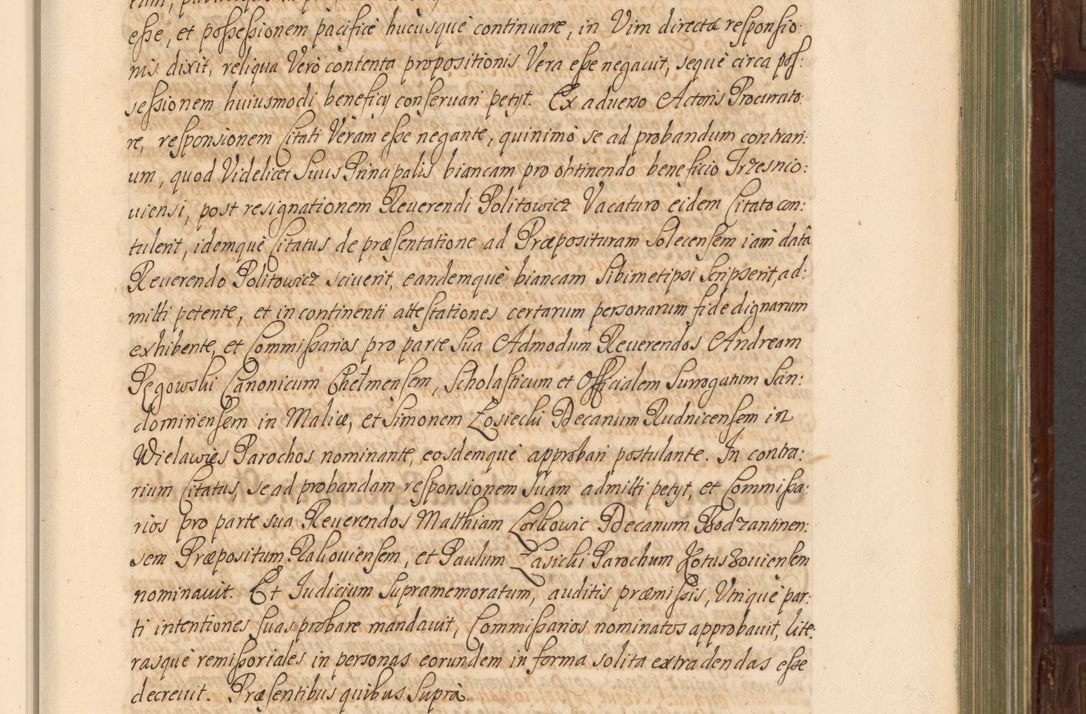 esse, et possessionem pacificè hucusquè continuare, in Vim directæ responsio:
nis dixit, reliqua Verò contenta propositionis Vera esse negauit, sequè circa pos:
sessionem huiusmodi beneficij conseruari petijt. Ex aduerso Actoris Procurato:
re, responsionem Citati Veram esse negante, quinimò se ad probandum contrari:
um, quod Videlicet Suus Principalis biancam pro obtinendo beneficio Trzesnio:
uiensi, post resignationem Reuerendi Politowicz Vacaturo eidem Citato con:
tulerit, idemquè Citatus de præsentatione ad Præposituram Solecensem iam datâ
Reuerendo Politowicz sciuerit, eandemquè biancam Sibimetipsi Scripserit, ad:
mitti petente, et in continenti attestationes certarum personarum fide dignarum
exhibente, et Commissarios pro parte Sua Admodum Reuerendos Andream
Pęgowski Canonicum Chełmensem, Scholasticum et Officialem Surrogatum San:
domiriensem in Malice, et Simonem Łosiecki Decanum Rudnicensem in
Wielawies Parochos nominante, eosdemque approbari postulante. In contra:
rium Citatus, se ad probandam responsionem Suam admitti petijt, et Commissa:
rios pro parte sua Reuerendos Matthiam Lorkowic Decanum Bodzantinen:
sem Præpositum Rakouiensem, et Paulum Łasicki Parochum Kotuszouiensem
nominauit. Et Judicium Supramemoratum, auditis præmissis, Vtriquè par:
ti intentiones Suas probare mandauit, Commissarios nominatos approbauit, lite:
rasquè remissoriales in personas eorundem in forma solita extradendas esse
decreuit. Præsentibus quibus Suprà.